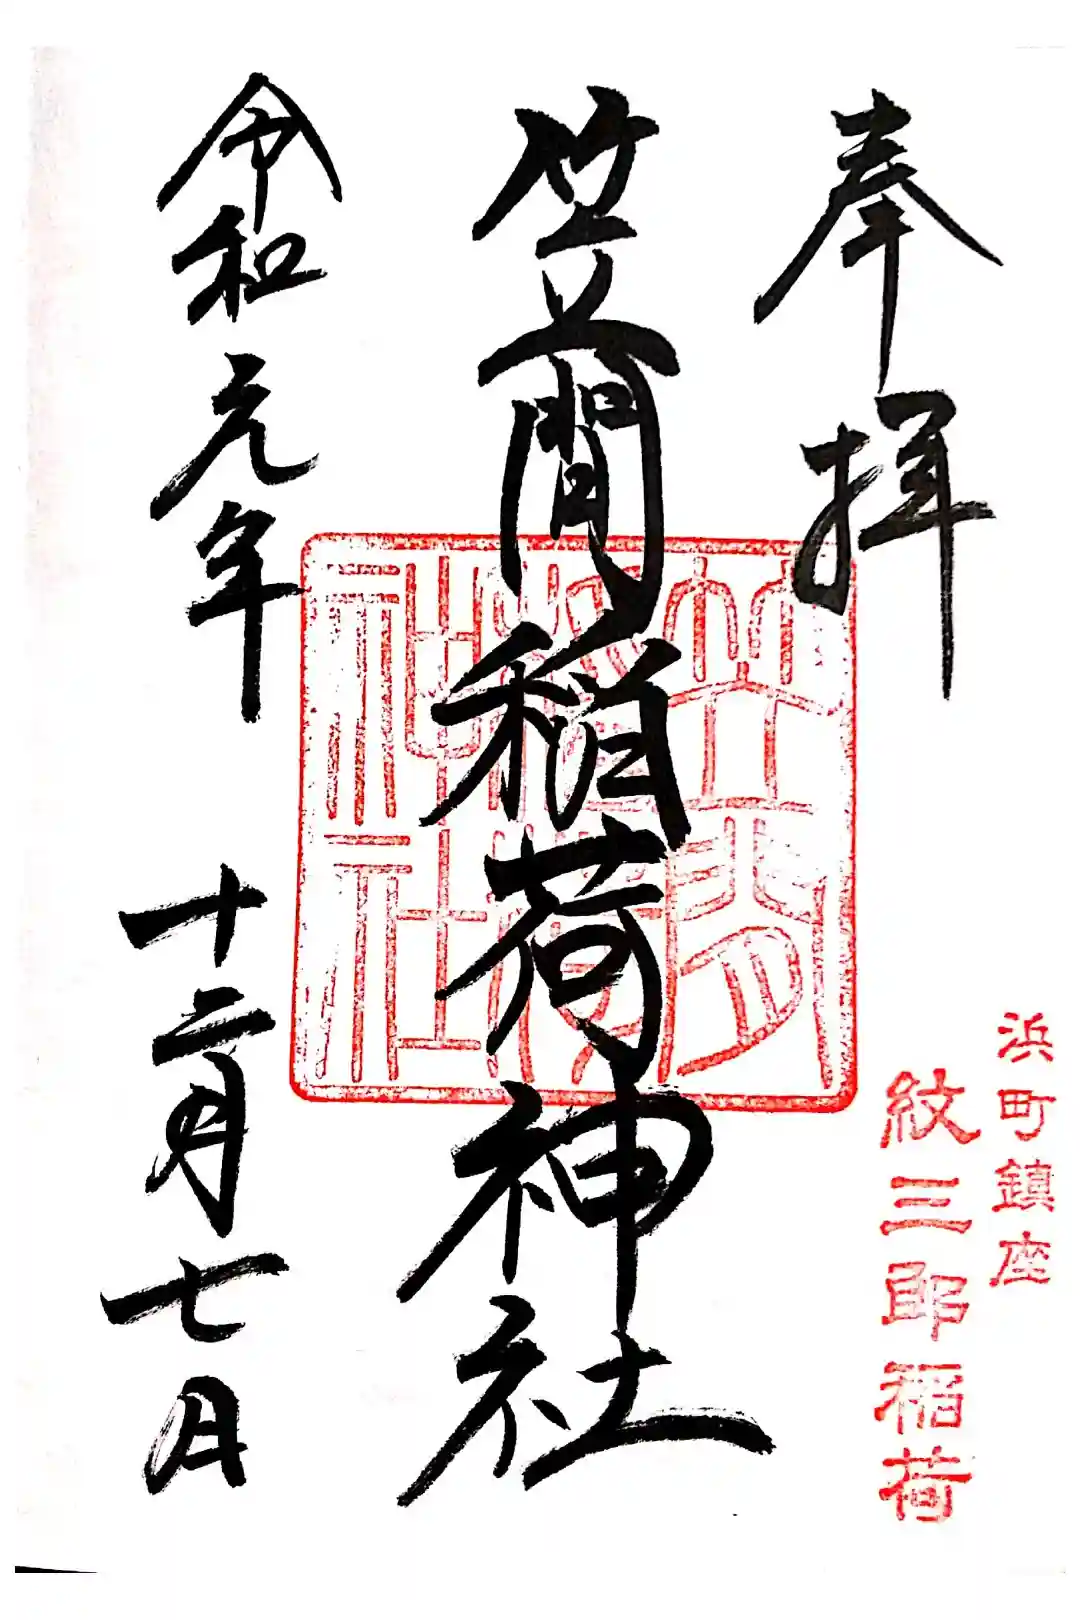 奉拝
浜町鎮座
紋三郎稲荷
笠間稲荷神社
笠間稲荷神社
令和元年十二月七日